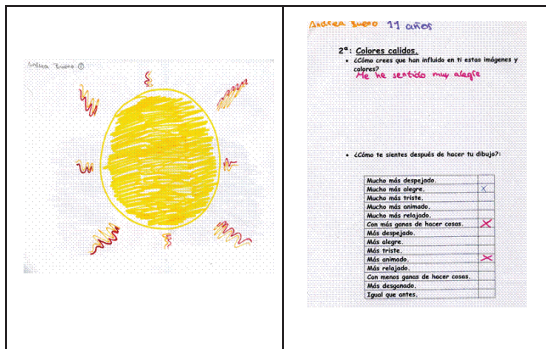 Andrea Bueno ①
Andrea Bueno 11 años
2ª: Colores calidos.
• ¿Cómo crees que han influido en ti estas imágenes y
colores?
Me he sentido muy alegre
• ¿Cómo te sientes después de hacer tu dibujo?:
Mucho más despejado.
Mucho más alegre. X
Mucho más triste.
Mucho más animado.
Mucho más relajado.
Con más ganas de hacer cosas. X
Más despejado.
Más alegre.
Más triste.
Más animado. X
Más relajado.
Con menos ganas de hacer cosas.
Más desganado.
Igual que antes.